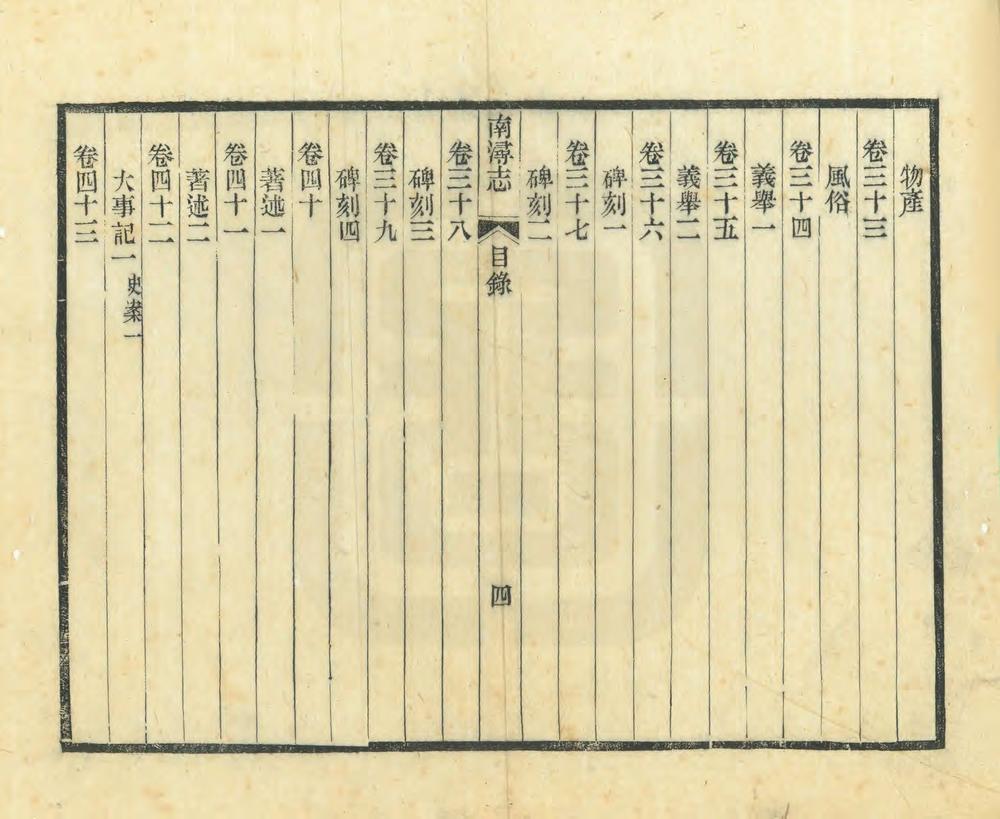 物產
卷三十三
風俗
卷三十四
義舉一
卷三十五
義舉二
卷三十六
碑刻一
卷三十七
碑刻二
南潯志 目錄 四
卷三十八
碑刻三
卷三十九
碑刻四
卷四十
著述一
卷四十一
著述二
卷四十二
大事記一 史案一
卷四十三